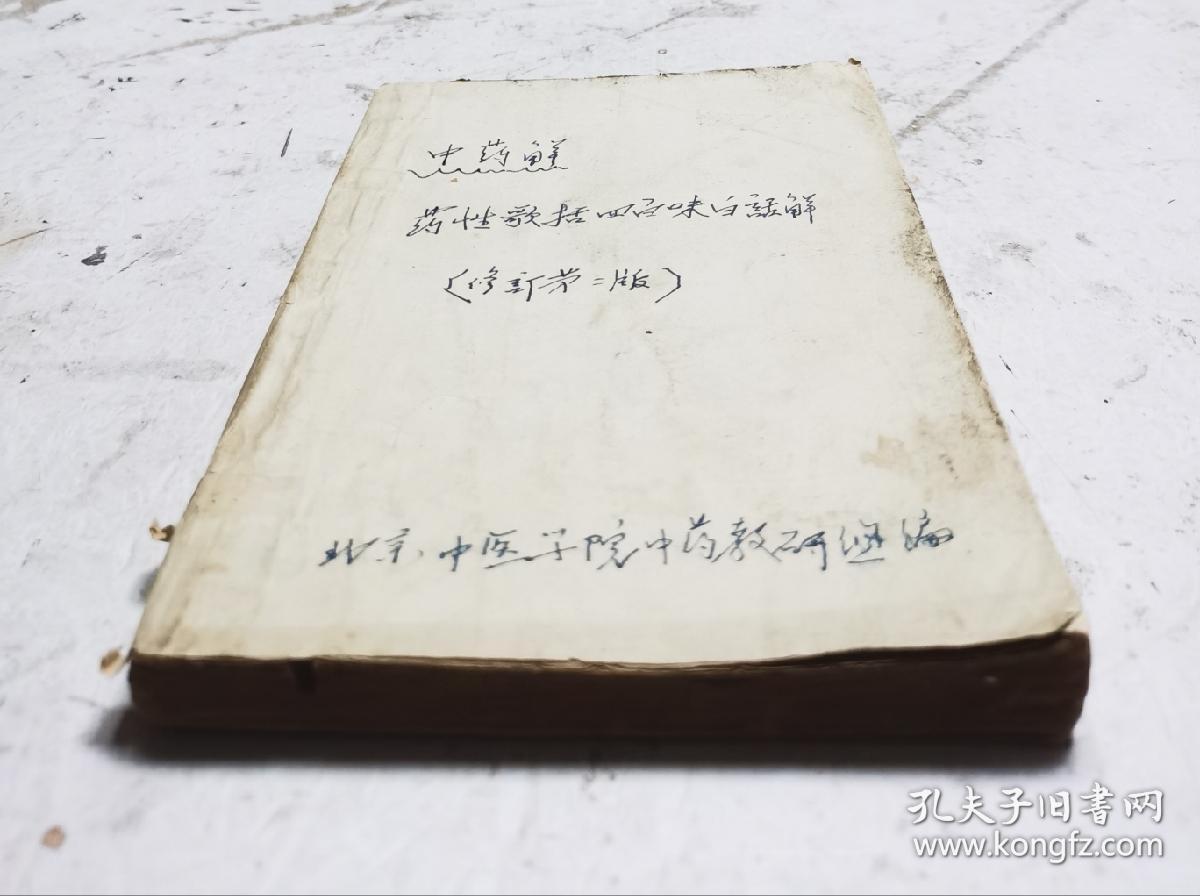 中药解
药性歌括四百味白话解
(修訂第二版)
北京中医学院中药教研组编
孔夫子旧书网
www.kongfz.com